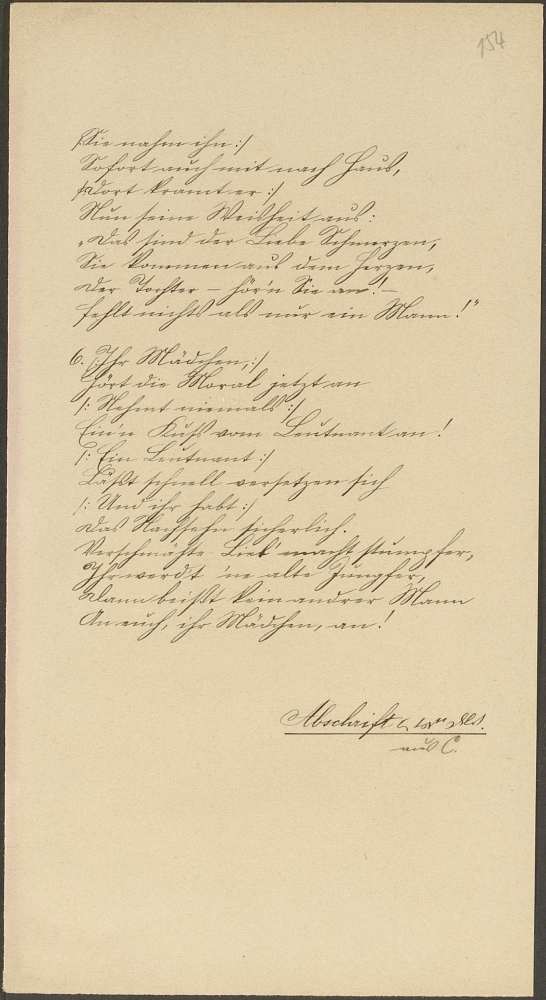 154
/: Sie nahm ihn :/
Sofort auch mit nach Haus,
/: Dort kramt er :/
Nun seine Weisheit aus:
„Das sind der Liebe Schmerzen,
Die kommen aus dem Herzen,
Der Tochter – hör'n Sie an! –
Fehlt nichts als nur ein Mann!"
6. /: Ihr Mädchen, :/
Hört die Moral jetzt an
/: Nehmt niemals :/
Ein'n Kuß vom Leutnant an!
/: Ein Leutnant :/
Läßt schnell versetzen sich
/: Und ihr habt :/
Das Nachsehn sicherlich.
Verschmähte Lieb' macht stumpfer,
Ihr werdt 'ne alte Jungfer,
Dann beißt kein andrer Mann
An euch, ihr Mädchen, an!
Abschrift
aus C.